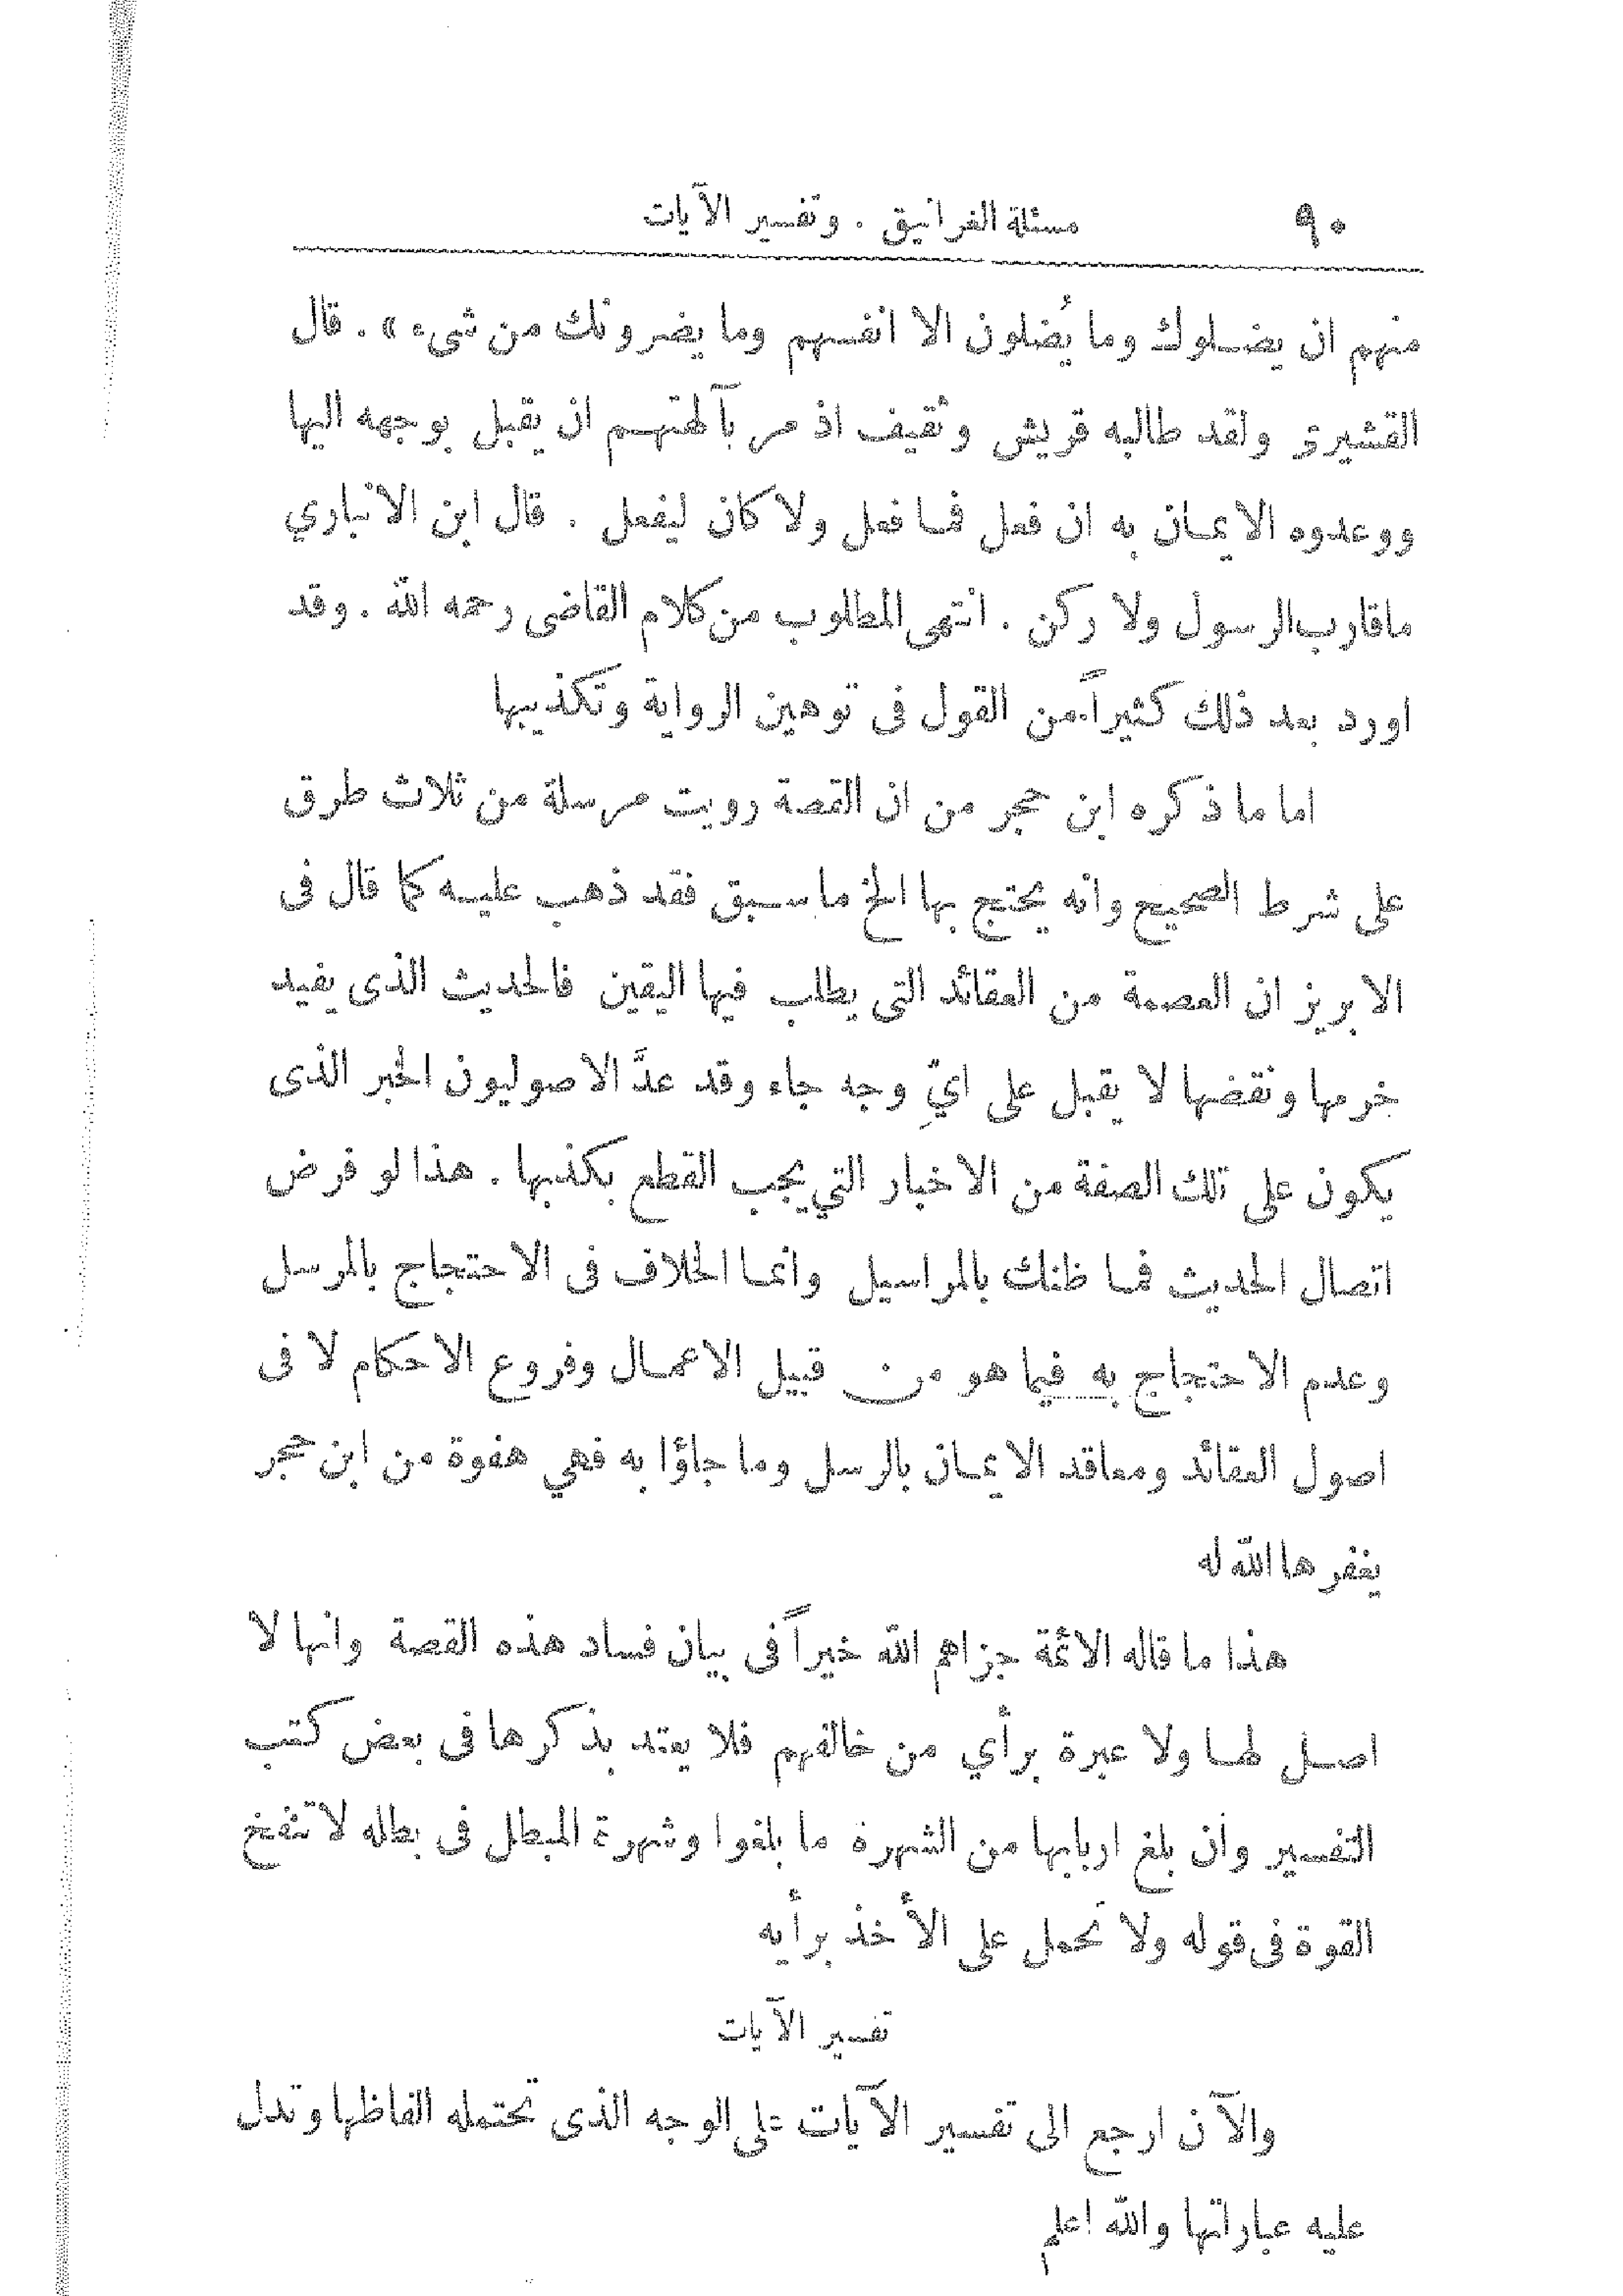 ٩٠ مسئلة الغرانيق . وتفسير الآيات
منهم ان يضلوك وما يُضلون الا انفسهم وما يضرونك من شىء » . قال
القشيرى ولقد طالبه قريش وثقيف اذ مر بآلهتهم ان يقبل بوجهه اليها
ووعدوه الايمان به ان فعل فما فعل ولا كان ليفعل . قال ابن الانباري
ماقارب الرسول ولا ركن . انتهى المطلوب من كلام القاضى رحمه الله . وقد
اورد بعد ذلك كثيراً من القول فى توهين الرواية وتكذيبها
اما ما ذكره ابن حجر من ان القصة رويت مرسلة من ثلاث طرق
على شرط الصحيح وانه يحتج بها الخ ما سبق فقد ذهب عليه كما قال فى
الابريز ان العصمة من العقائد التى يطلب فيها اليقين فالحديث الذى يفيد
خرمها ونقضها لا يقبل على ايِّ وجه جاء وقد عدَّ الاصوليون الخبر الذى
يكون على تلك الصفة من الاخبار التي يجب القطع بكذبها . هذا لو فرض
اتصال الحديث فما ظنك بالمراسيل وانما الخلاف فى الاحتجاج بالمرسل
وعدم الاحتجاج به فيما هو من قبيل الاعمال وفروع الاحكام لا فى
اصول العقائد ومعاقد الايمان بالرسل وما جاؤا به فهي هفوة من ابن حجر
يغفرها الله له
هذا ما قاله الائمة جزاهم الله خيراً فى بيان فساد هذه القصة وانها لا
اصل لها ولا عبرة برأي من خالفهم فلا يعتد بذكرها فى بعض كتب
التفسير وان بلغ اربابها من الشهرة ما بلغوا وشهرة المبطل فى بطله لا تنفخ
القوة فى قوله ولا تحمل على الأخذ برأيه
تفسير الآيات
والآن ارجع الى تفسير الآيات على الوجه الذى تحتمله الفاظها وتدل
عليه عباراتها والله اعلم